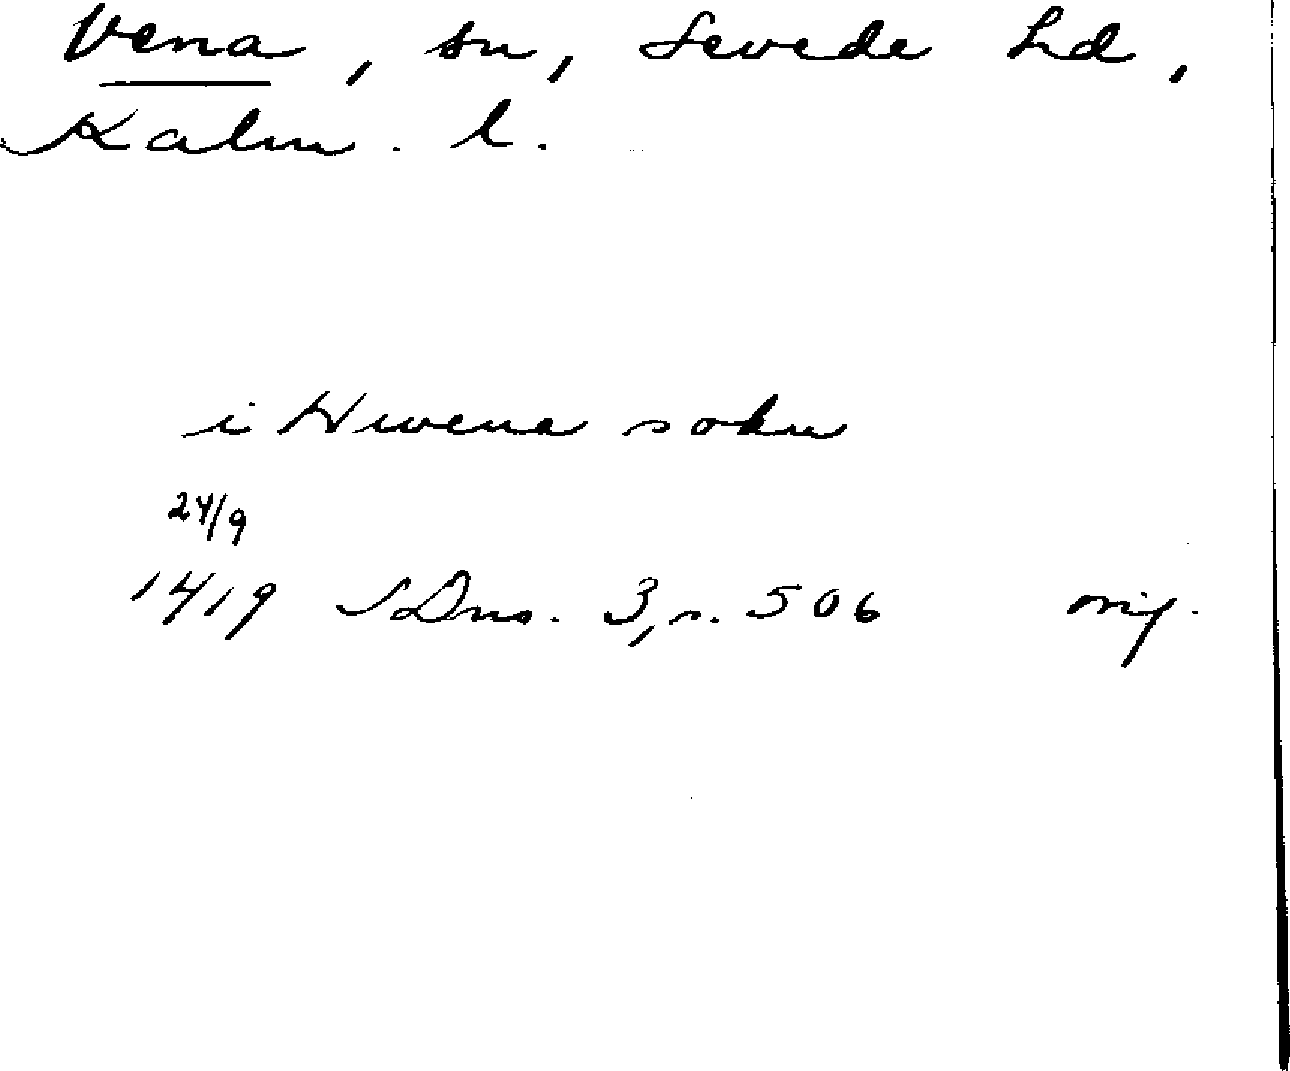 Vena, sn, Sevede hd,
Kalm. l.
i Hwena sokn
24/9
1419 SDns. 3, s. 506 orig.